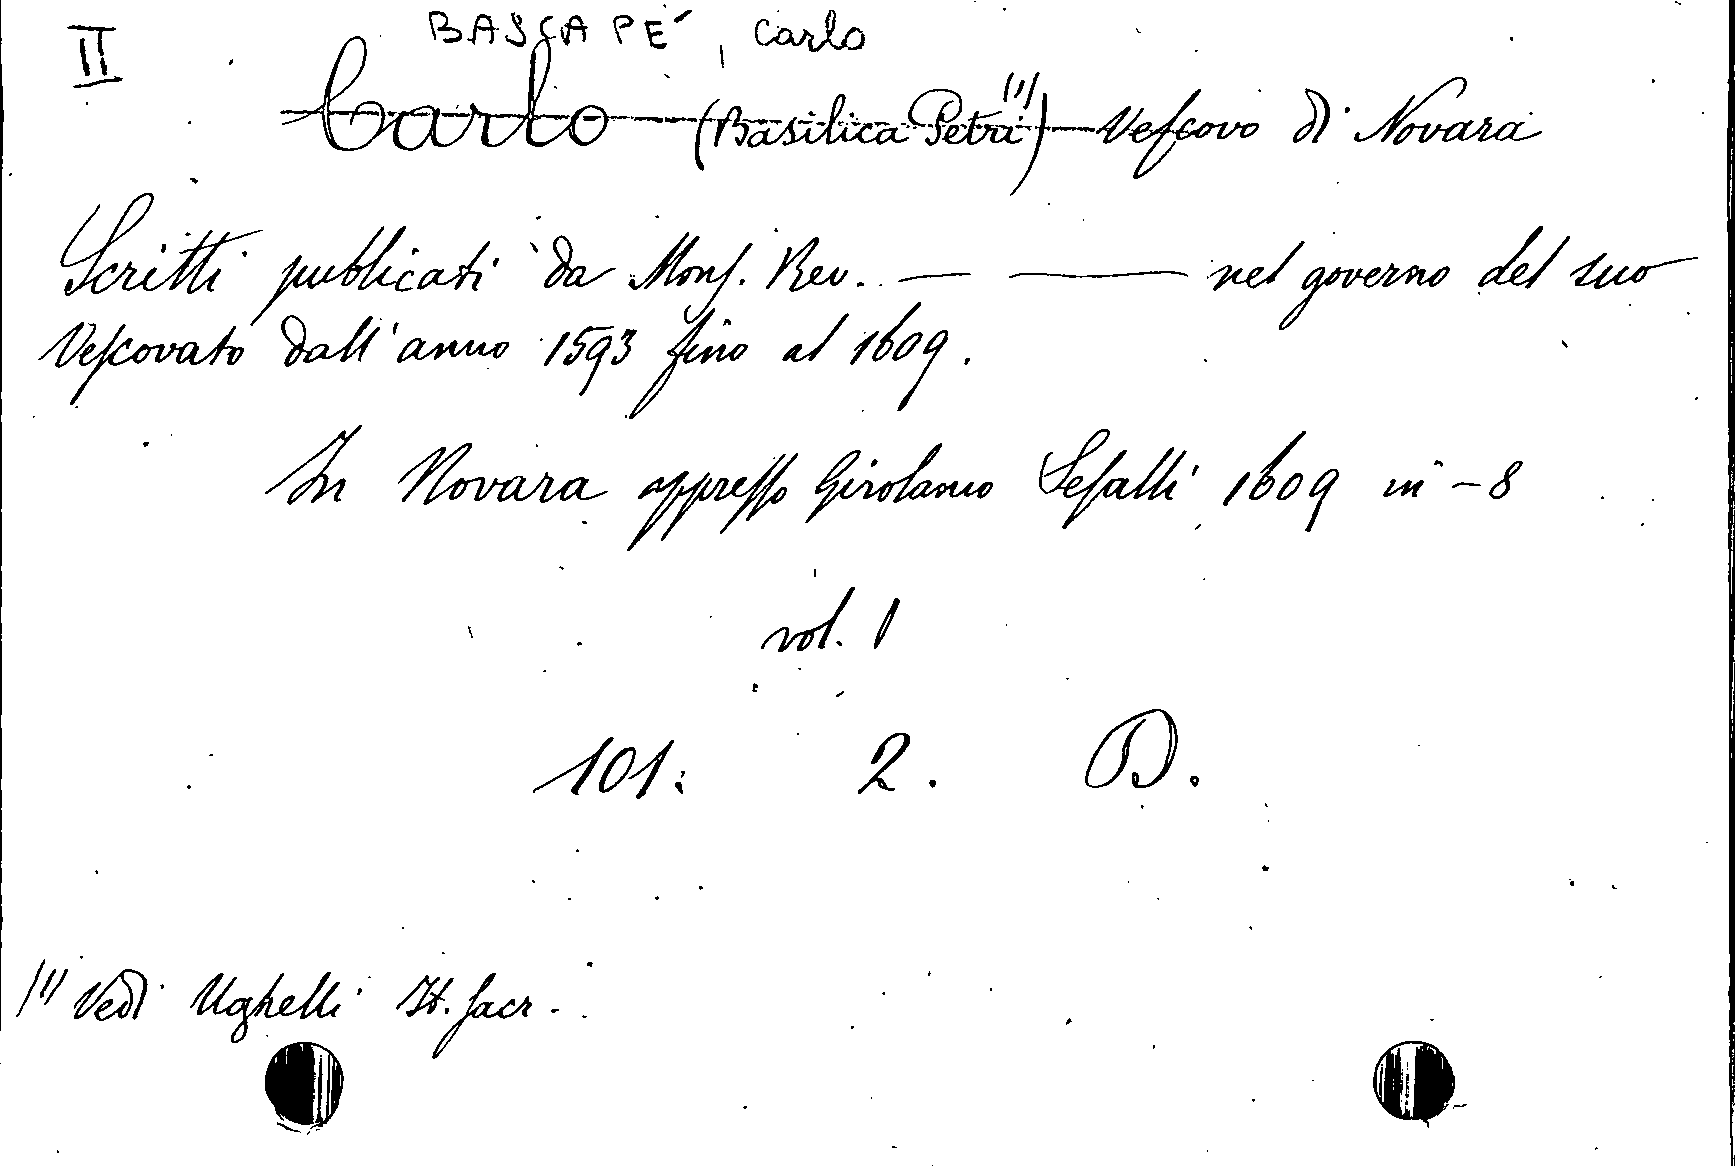 II
BASCAPÉ, Carlo
Carlo (Basilica Petri (1)) Vescovo di Novara
Scritti publicati da Mons. Rev. — — nel governo del suo
Vescovato dall'anno 1593 fino al 1609.
In Novara appresso Girolamo Sesalli 1609 in-8
vol. 1
101. 2. D.
(1) Vedi Ughelli It. sacr.